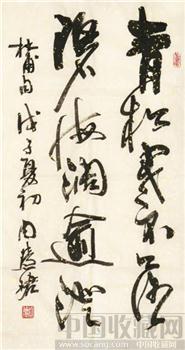 青松寒不落
碧海阔逾澄
杜甫句 戊子夏初 周慧珺
中国收藏网